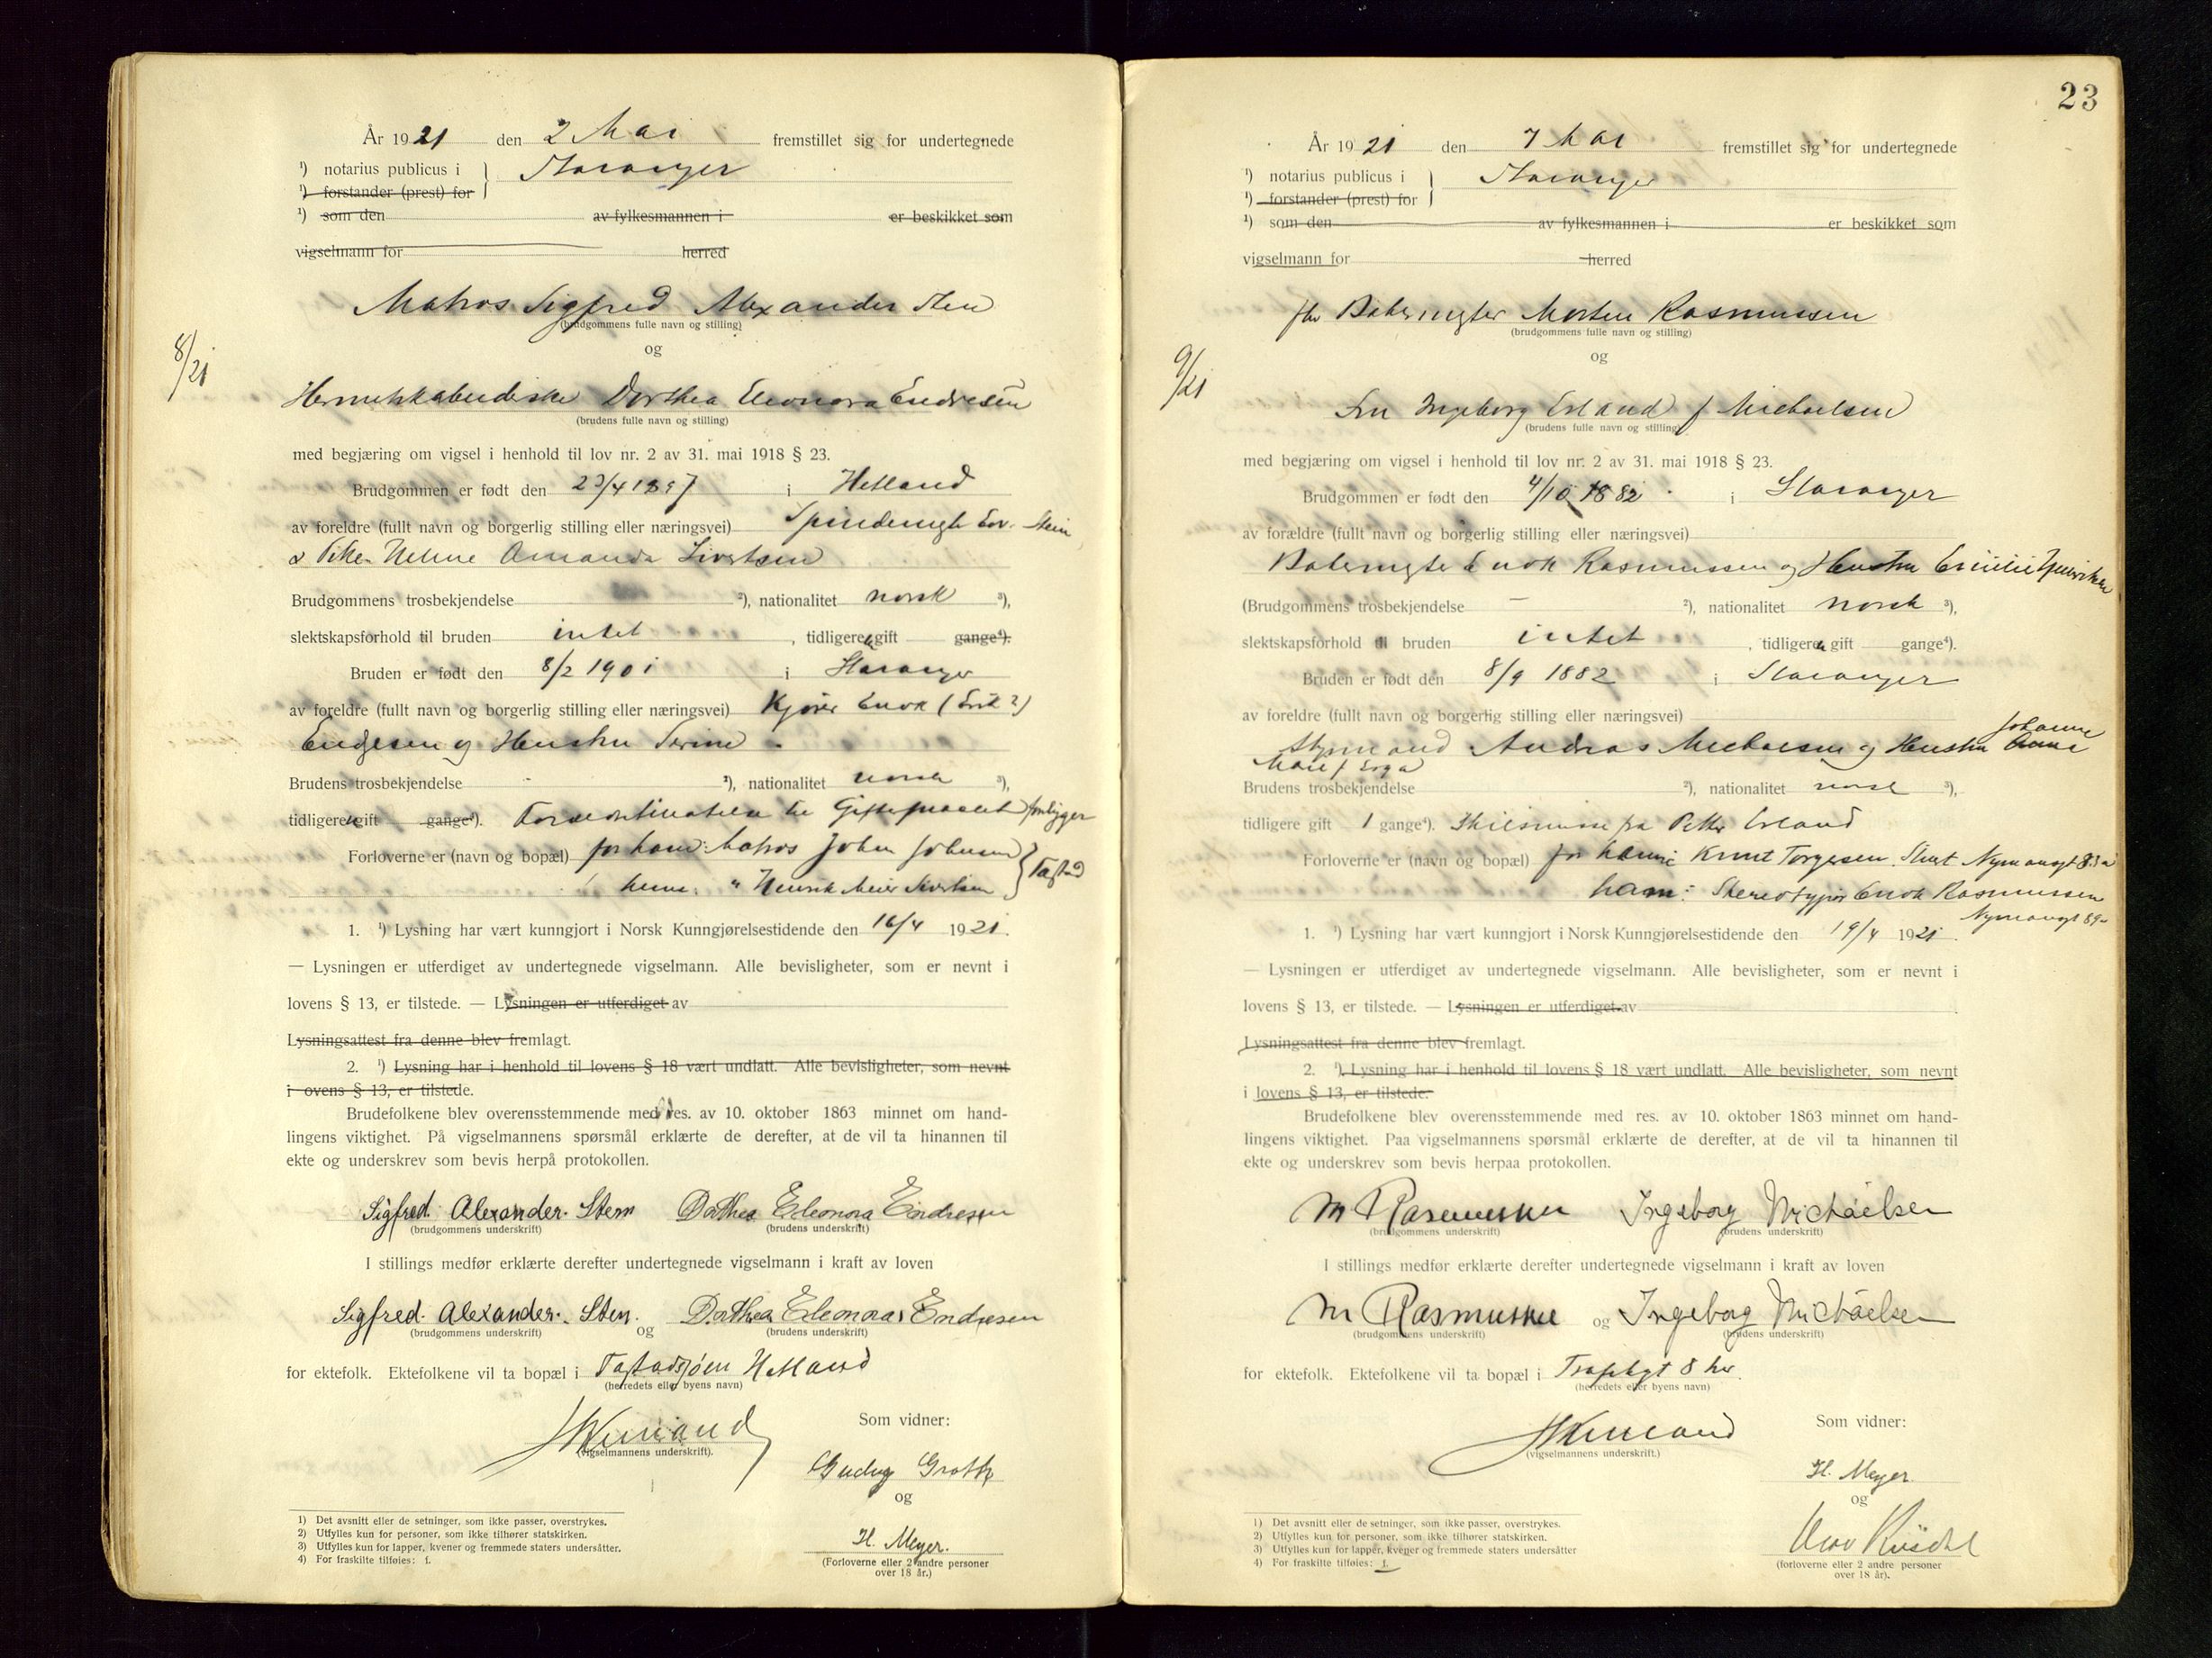 År 1921 den 2 Mai fremstillet sig for undertegnede
¹) notarius publicus i } Stavanger
¹) forstander (prest) for
¹) som den av fylkesmannen i er beskikket som
vigselmann for herred
Matros Sigfred Alexander Sten
(brudgommens fulle navn og stilling)
8/21
og
Dorthea Eleonora Endresen
(brudens fulle navn og stilling)
med begjæring om vigsel i henhold til lov nr. 2 av 31. mai 1918 § 23.
Brudgommen er født den 23/4 1897 i Hetland
av foreldre (fullt navn og borgerlig stilling eller næringsvei)
Amanda Sivertsen
Brudgommens trosbekjendelse ²), nationalitet norsk ³),
slektskapsforhold til bruden intet , tidligere gift gange⁴).
Bruden er født den 8/2 1901 i Stavanger
av foreldre (fullt navn og borgerlig stilling eller næringsvei) Kjører Enok (Erik?)
Endresen og Hustru Serine
Brudens trosbekjendelse - ²), nationalitet norsk ³),
tidligere gift gange⁴). til Giftermaalet foreligger
Forloverne er (navn og bopæl) for ham: Matros Johan Johnsen
henne: " Henrik Meier Sivertsen } Tastad
1. ¹) Lysning har vært kunngjort i Norsk Kunngjørelsestidende den 16/4 1921.
— Lysningen er utferdiget av undertegnede vigselmann. Alle bevisligheter, som er nevnt i
lovens § 13, er tilstede. — Lysningen er utferdiget av
Lysningsattest fra denne blev fremlagt.
2. ¹) Lysning har i henhold til lovens § 18 vært undlatt. Alle bevisligheter, som nevnt
i ovens § 13, er tilstede.
Brudefolkene blev overensstemmende med res. av 10. oktober 1863 minnet om hand-
lingens viktighet. På vigselmannens spørsmål erklærte de derefter, at de vil ta hinannen til
ekte og underskrev som bevis herpå protokollen.
Sigfred. Alexander. Sten Dorthea Eleonora Endresen
(brudgommens underskrift) (brudens underskrift)
I stillings medfør erklærte derefter undertegnede vigselmann i kraft av loven
Sigfred. Alexander. Sten. og Dorthea Eleonora Endresen
(brudgommens underskrift) (brudens underskrift)
for ektefolk. Ektefolkene vil ta bopæl i Tastadsjøen Hetland
(herredets eller byens navn)
(vigselmannens underskrift).
Som vidner:
Gudny Groth
og
H. Meyer.
(Forloverne eller 2 andre personer
over 18 år.)
1) Det avsnitt eller de setninger, som ikke passer, overstrykes.
2) Utfylles kun for personer, som ikke tilhører statskirken.
3) Utfylles kun for lapper, kvener og fremmede staters undersåtter.
4) For fraskilte tilføies: f.
23
År 1921 den 7 Mai fremstillet sig for undertegnede
¹) notarius publicus i } Stavanger
¹) forstander (prest) for
¹) som den av fylkesmannen i er beskikket som
vigselmann for herred
Morten Rasmussen
(brudgommens fulle navn og stilling)
9/21
og
Fru Ingeborg Erland f Michaelsen
(brudens fulle navn og stilling)
med begjæring om vigsel i henhold til lov nr. 2 av 31. mai 1918 § 23.
Brudgommen er født den 4/10 1882 i Stavanger
av forældre (fullt navn og borgerlig stilling eller næringsvei)
Enok Rasmussen og Hustru
(Brudgommens trosbekjendelse — ²), nationalitet norsk ³),
slektskapsforhold til bruden intet , tidligere gift gange⁴).
Bruden er født den 8/9 1882 i Stavanger
av foreldre (fullt navn og borgerlig stilling eller næringsvei)
Styrmand Andreas Michaelsen og Hustru Johanne
Marie f Erga
Brudens trosbekjendelse ²), nationalitet norsk ³),
tidligere gift 1 gange⁴). Skilsmisse fra Petter Erland
Forloverne er (navn og bopæl) for henne Knut Torgersen
ham: Stereotypør Enok Rasmussen
Nymansgt 89
1. ¹) Lysning har vært kunngjort i Norsk Kunngjørelsestidende den 19/4 1921.
— Lysningen er utferdiget av undertegnede vigselmann. Alle bevisligheter, som er nevnt i
lovens § 13, er tilstede. — Lysningen er utferdiget av
Lysningsattest fra denne blev fremlagt.
2. ¹) Lysning har i henhold til lovens § 18 vært undlatt. Alle bevisligheter, som nevnt
i lovens § 13, er tilstede.
Brudefolkene blev overensstemmende med res. av 10. oktober 1863 minnet om hand-
lingens viktighet. Paa vigselmannens spørsmål erklærte de derefter, at de vil ta hinannen til
ekte og underskrev som bevis herpaa protokollen.
M Rasmussen Ingeborg Michaelsen
(brudgommens underskrift) (brudens underskrift)
I stillings medfør erklærte derefter undertegnede vigselmann i kraft av loven
M Rasmussen og Ingeborg Michaelsen
(brudgommens underskrift) (brudens underskrift)
for ektefolk. Ektefolkene vil ta bopæl i
(herredets eller byens navn)
(vigselmannens underskrift.)
Som vidner:
H. Meyer.
og
(forloverne eller 2 andre personer
over 18 år).
1) Det avsnitt eller de setninger, som ikke passer, overstrykes.
2) Utfylles kun for personer, som ikke tilhører statskirken.
3) Utfylles kun for lapper, kvener og fremmede staters undersåtter
4) For fraskilte tilføies: f.